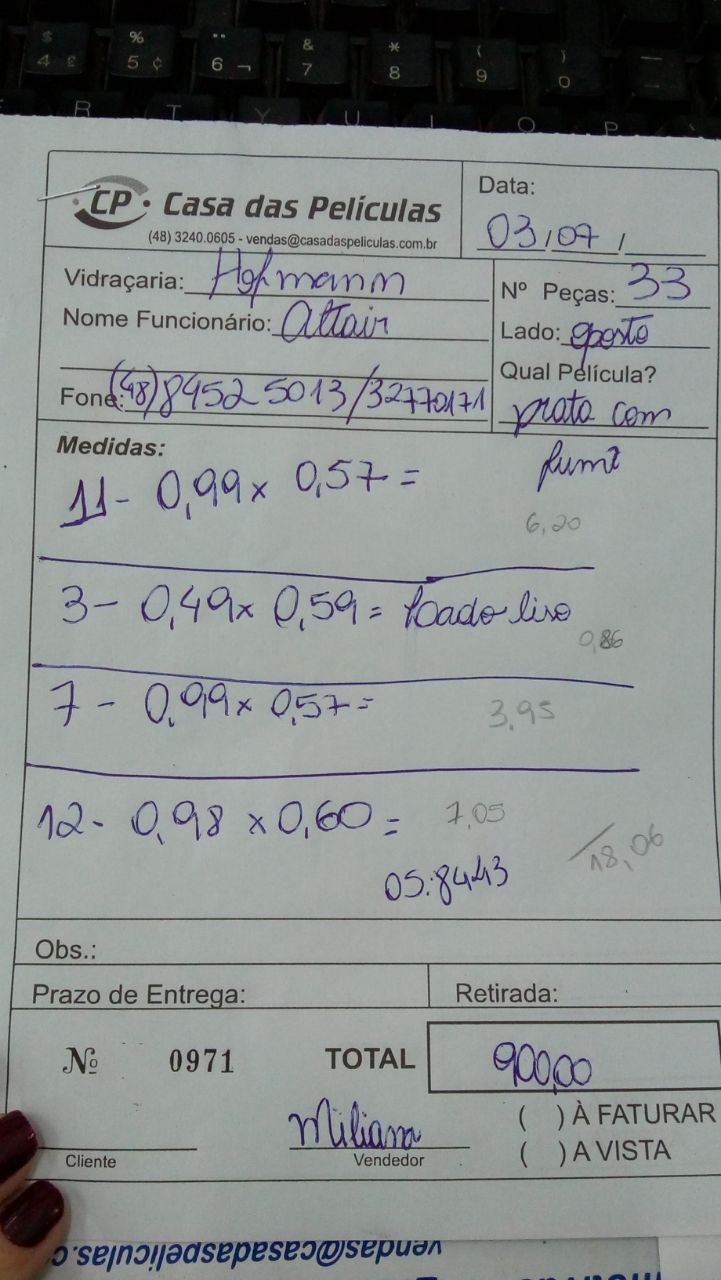 $ % ¨ & * ( )
4 £ 5 ¢ 6 ¬ 7 8 9 0
R T Y U I O P
CP Casa das Películas
(48) 3240.0605 - vendas@casadaspeliculas.com.br
Data:
03/07/
Vidraçaria: Hofmann
Nome Funcionário: Altair
Fone: (48) 84525013/32770171
Nº Peças: 33
Lado: oposto
Qual Película?
prata com
fumê
Medidas:
11 - 0,99 x 0,57 =
6,20
3 - 0,49 x 0,59 = lado liso
0,86
7 - 0,99 x 0,57 =
3,95
12 - 0,98 x 0,60 = 7,05
18,06
05:8443
Obs.:
Prazo de Entrega:
Retirada:
Nº 0971
TOTAL 900,00
Miliana
( ) À FATURAR
( ) A VISTA
Cliente
Vendedor
vendas@casadaspeliculas.c